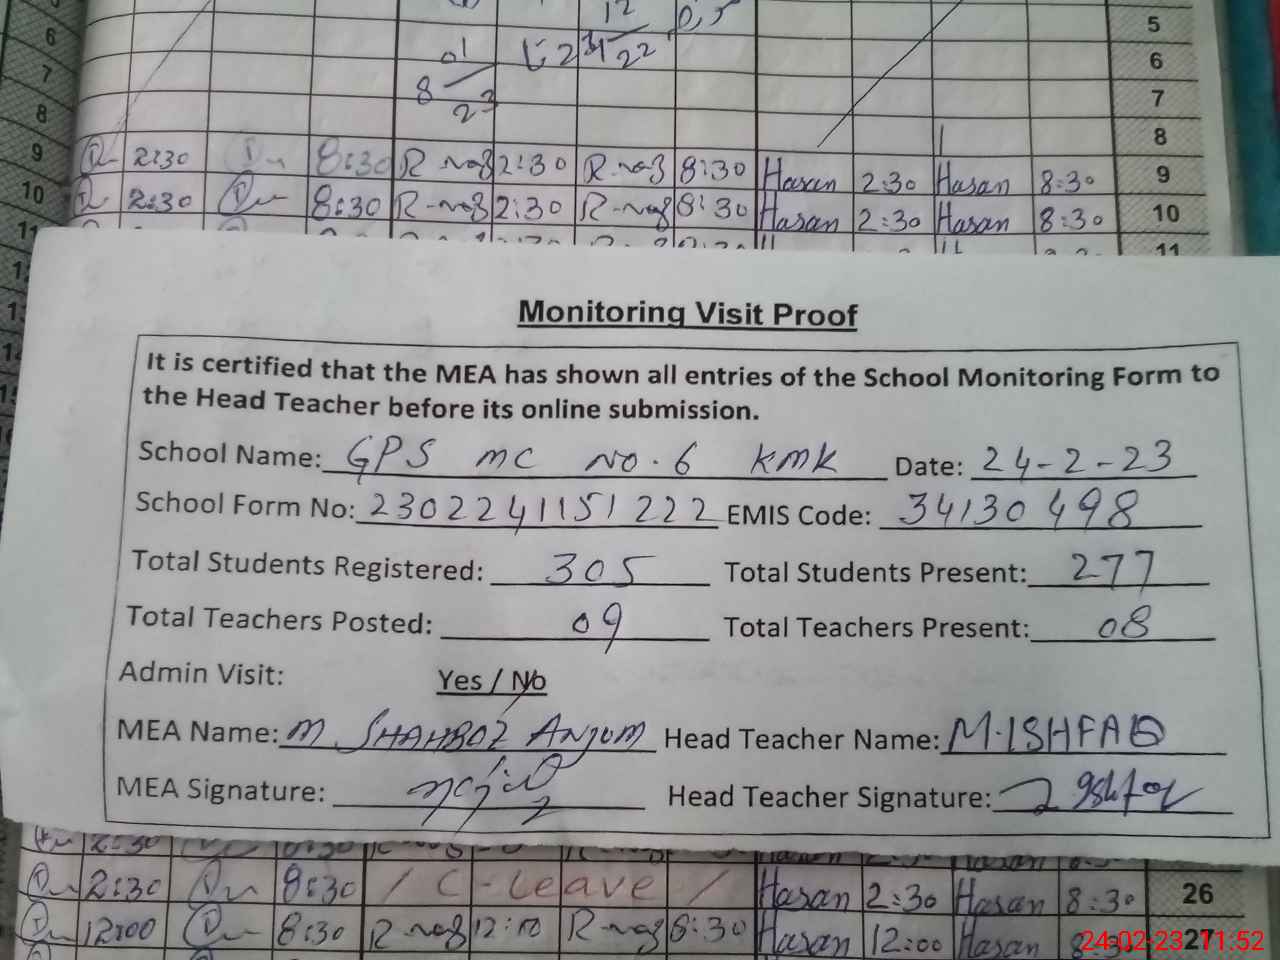 12
01
31
22
8
23
5
6 6
7 7
8 8
9 2:30 8:30 R-nag 2:30 R-nag 8:30 Hasan 2:30 Hasan 8:30 9
10 2:30 8:30 R-nag 2:30 R-nag 8:30 Hasan 2:30 Hasan 8:30 10
11 11
Monitoring Visit Proof
It is certified that the MEA has shown all entries of the School Monitoring Form to
the Head Teacher before its online submission.
School Name: GPS MC NO. 6 KMK Date: 24-2-23
School Form No: 2302241151222 EMIS Code: 34130498
Total Students Registered: 305 Total Students Present: 277
Total Teachers Posted: 09 Total Teachers Present: 08
Admin Visit: Yes / No
MEA Name: M SHAHBAZ ANJUM Head Teacher Name: M.ISHFAQ
MEA Signature: Head Teacher Signature: Ishfaq
2:30 8:30 / C-Leave / Hasan 2:30 Hasan 8:30 26
12:00 8:30 R-nag 12:00 R-nag 8:30 Hasan 12:00 Hasan 8:30 27
24-02-23 11:52